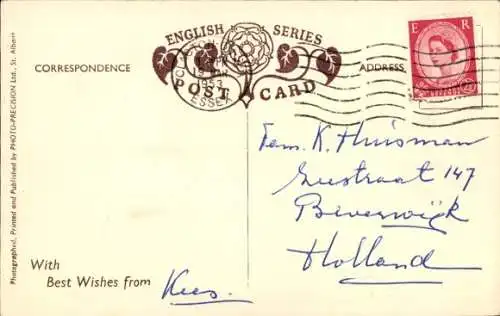 ENGLISH SERIES
POST CARD
CORRESPONDENCE
ADDRESS
E R
1953
ESSEX
Fam. K. Huisman
Zeestraat 147
Beverwijk
Holland
With
Best Wishes from Kees.
Photographed, Printed and Published by PHOTO-PRECISION Ltd., St. Albans